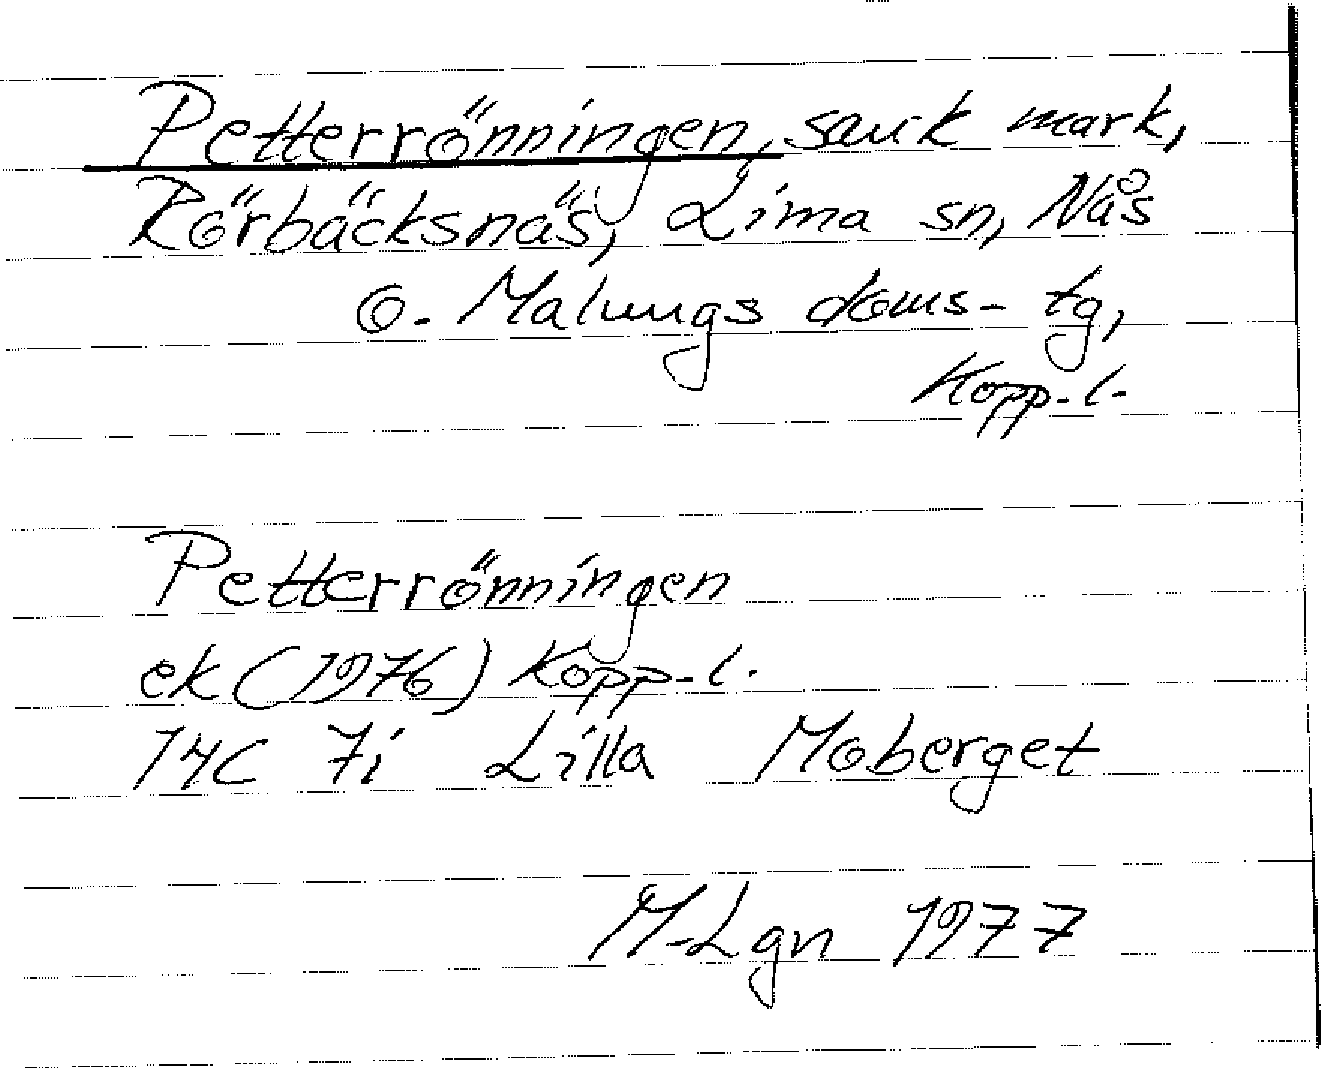 Petterrönningen, sank mark,
Rörbäcksnäs, Lima sn, Nås
o. Malungs doms- tg,
Kopp. l.
Petterrönningen
ek (1976) Kopp. l.
14C 7i Lilla Moberget
M-Lgn 1977